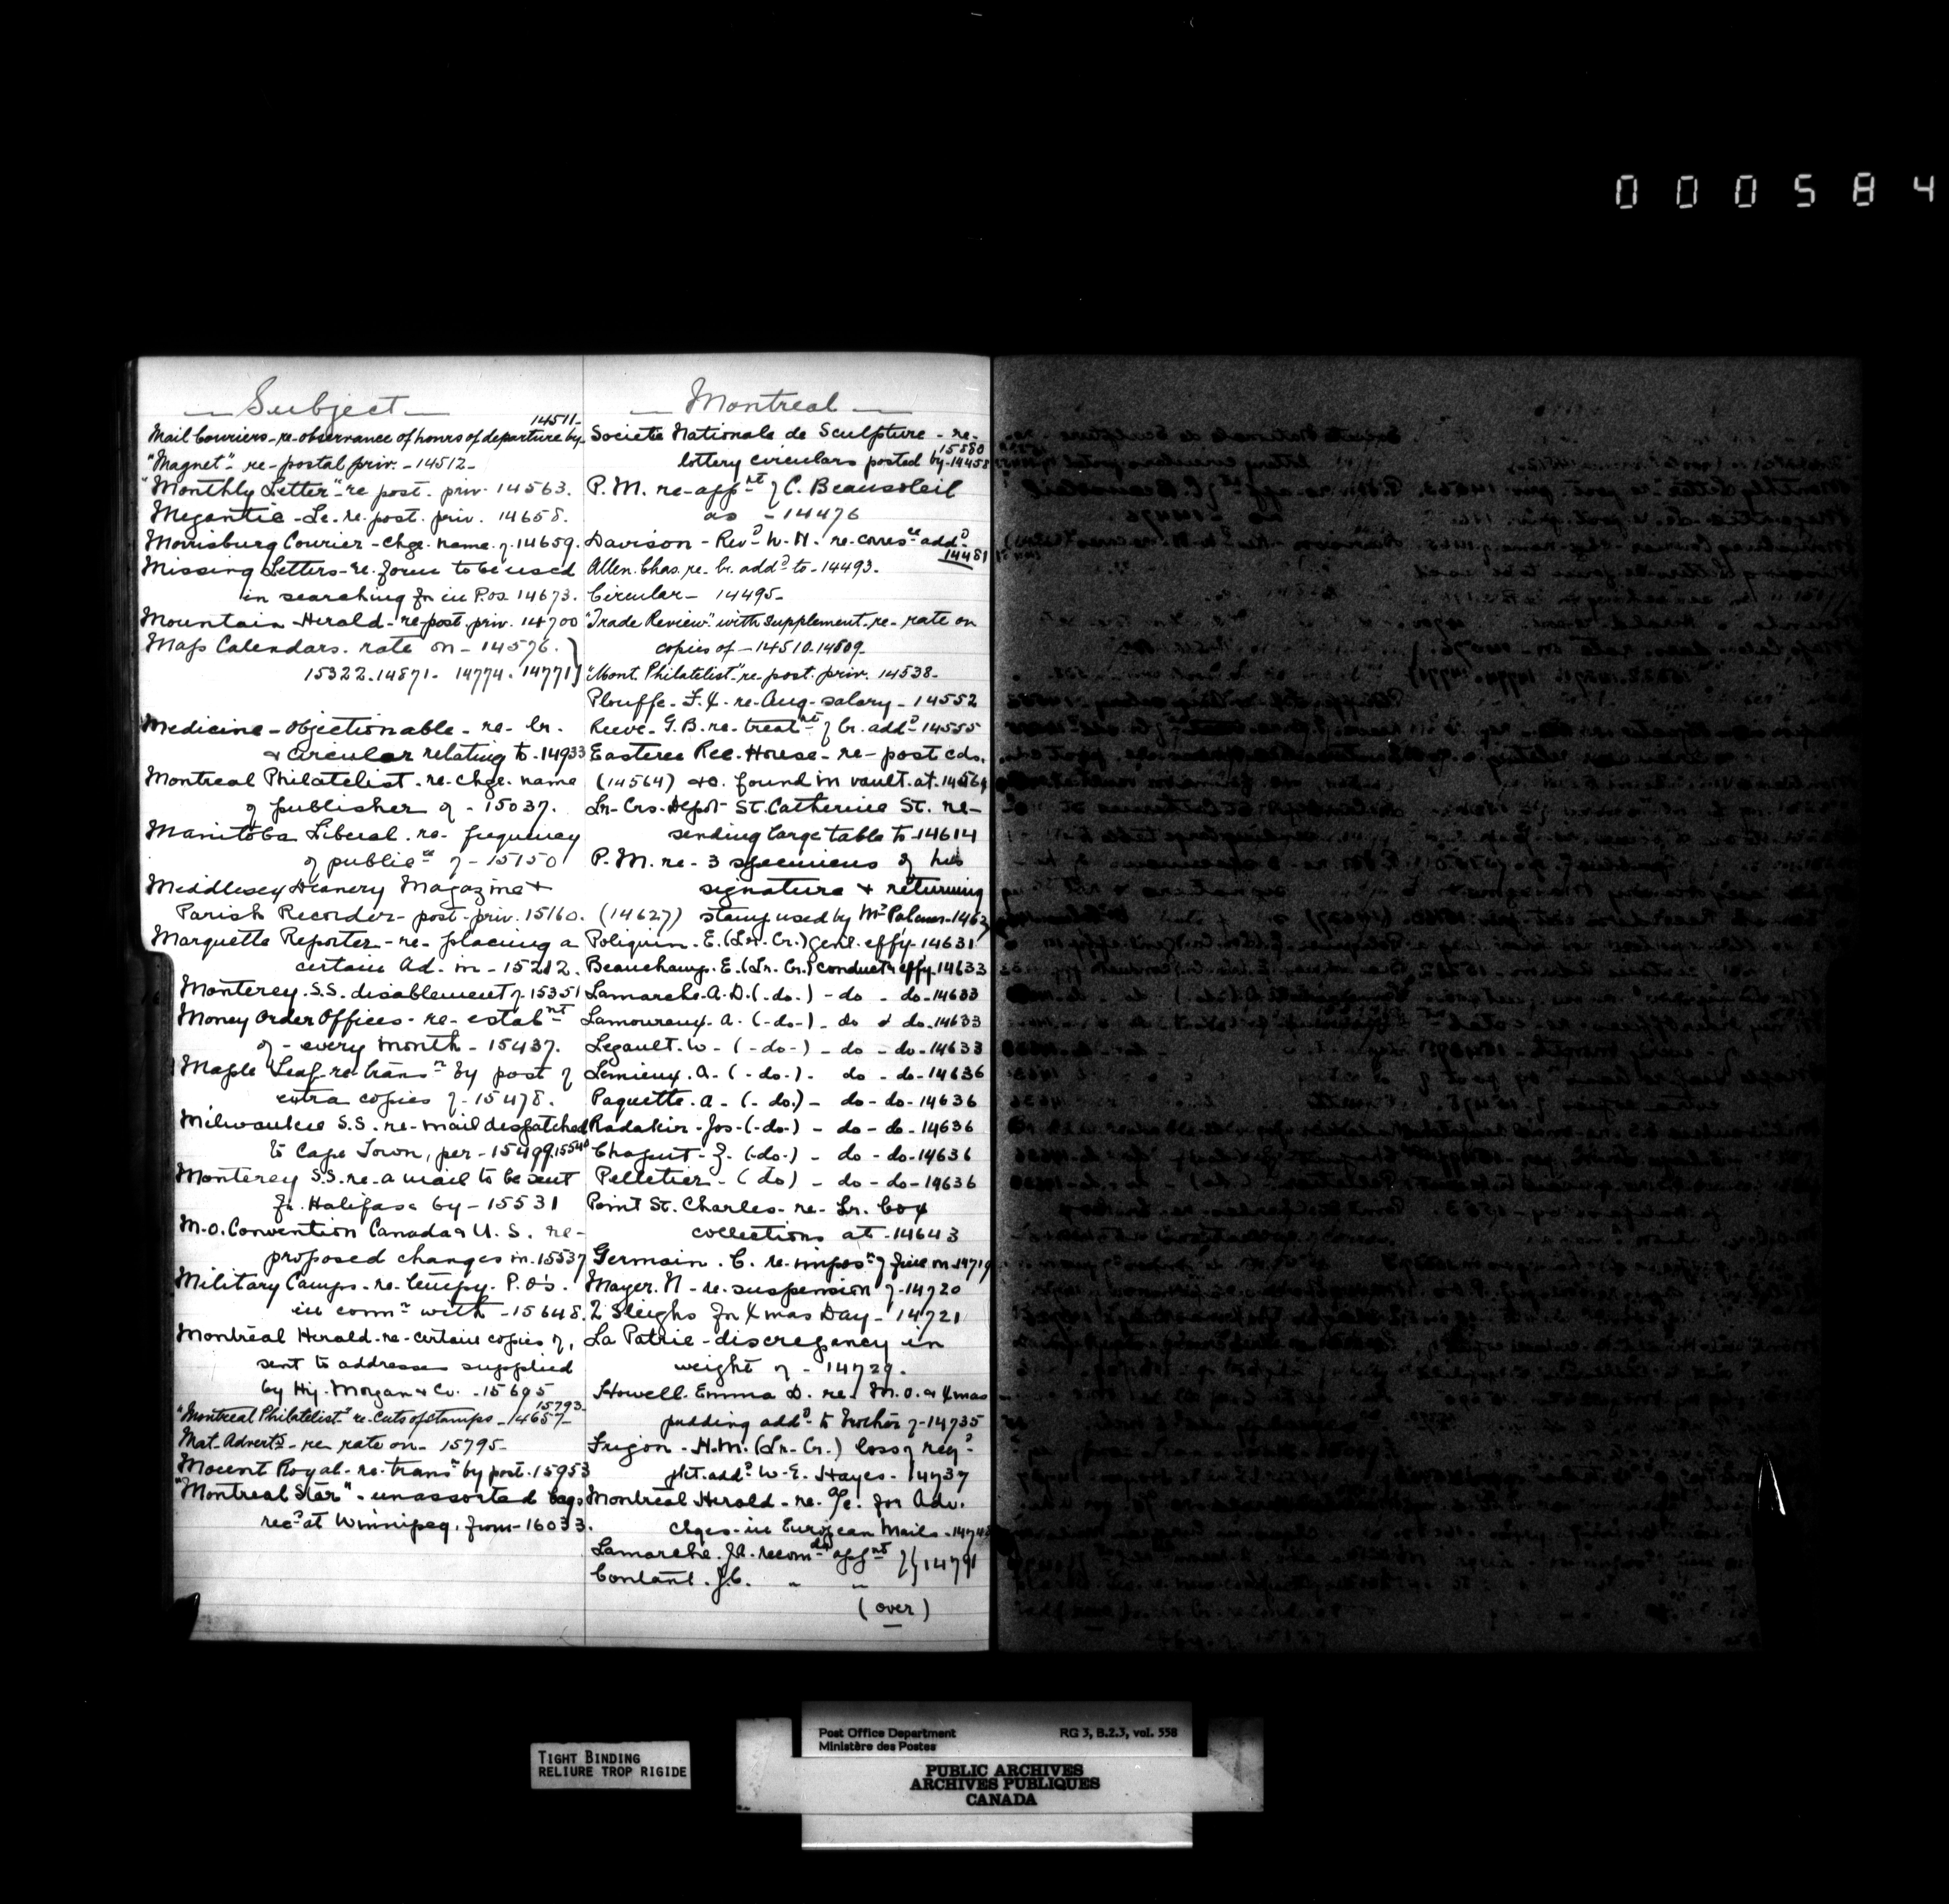 000584
Subject
14511-
Mail Couriers-re-observance of hours of departure by-
"Magnet"- re-postal priv.-14512-
"Monthly Letter"-re post. priv. 14563.
Megantic-Le. re. post. priv. 14658.
Morrisburg Courier-chge. name of-14659.
Missing Letters-re. form to be used
in searching for in P.Os. 14673.
Mountain Herald-re-post. priv. 14700
Map Calendars. rate on-14576.
15322.14871. 14774. 14771
Medicine-Objectionable-re-lr.
& circular relating to-14933
Montreal Philatelist-re-chge. name
of publisher of-15037.
Manitoba Liberal-re-frequency
of publicn of-15150
Middlesex Deanery Magazine &
Parish Recorder-post-priv. 15160.
Marquette Reporter-re-placing a
certain Ad. in-15212.
Monterey. S.S. disablement of-15351
Money Order Offices-re-estabnt
of-every month-15437.
"Maple Leaf-re-transn by post of
extra copies of-15478.
Milwaukee S.S.-re-mail despatched
to Cape Town, per-15499.15540
Monterey S.S.-re-a mail to be sent
fr. Halifax by-15531
M.O. Convention Canada & U.S. re-
proposed changes in.15537
Military Camps-re-tempy. P.O's.
in connn with-15648.
Montreal Herald-re-certain copies of,
sent to addresses supplied
by Hy. Morgan & Co.-15695
15793-
"Montreal Philatelist"-re-cuts of stamps-14657-
Mat. Advertg-re-rate on-15795-
Mount Royal-re-transn by post-15953
"Montreal Star"-unassorted bags
recd at Winnipeg, from-16033.
Montreal
Societe Nationale de Sculpture-re-
15580
lottery circulars posted by-14458
P.M. re-appnt of C. Beausoleil
as -14476
Davison-Revd W.H. re-corresce addd
14481
Allen. Chas. re-lr. addd to-14493-
Circular-14495-
"Trade Review" with supplement-re-rate on
copies of-14510.14509-
"Mont. Philatelist"-re-post. priv. 14538-
Plouffe-F.X.-re-Aug-salary-14552
Reeve-G.B. re-treatnt of lr. addd 14555
Eastern Rec. House-re-post cds.
(14564) &c. found in vault. at-14564
Lr-Crs-Depot St. Catherine St. re-
sending large table to-14614
P.M. re-3 specimens of his
signature & returning
(14627) stamp used by Mr Palmer-1462
Poliquin. E. (Lr. Cr.) genl. effy-14631
Beauchamp. E. (Lr. Cr.) conduct & effy-14633
Lamarche. A.D. (-do.)-do-do-14633
Lamoureux. A. (-do-)-do & do-14633
Legault. W-(-do-)-do-do-14633
Lemieux. A-(-do-).do-do-14636
Paquette. A-(-do.)-do-do-14636
Radakir-Jos-(-do-)-do-do-14636
Chaput-Z. (-do-)-do-do-14636
Pelletier-(do)-do-do-14636
Point St. Charles-re-Lr. box
collections at-14643
Germain. C. re-imposn of fine on-14719
Mayer. N-re-suspension of-14720
2 Sleighs for Xmas Day-14721
La Patrie-discrepancy in
weight of-14729.
Howell. Emma D. re-M.O. & Xmas
pudding addd to brother of-14735
Frigon-H.M. (Lr-Cr.) loss of regd
pkt. addd W.E. Hayes-14737
Montreal Herald-re-a/c. for Adv.
chges-in European Mails-1474
Lamarche. J.A. recomdd appnt of } 14791
Contant. J.C. " "
(over)
TIGHT BINDING
RELIURE TROP RIGIDE
Post Office Department RG 3, B.2.3, vol. 558
Ministère des Postes
PUBLIC ARCHIVES
ARCHIVES PUBLIQUES
CANADA